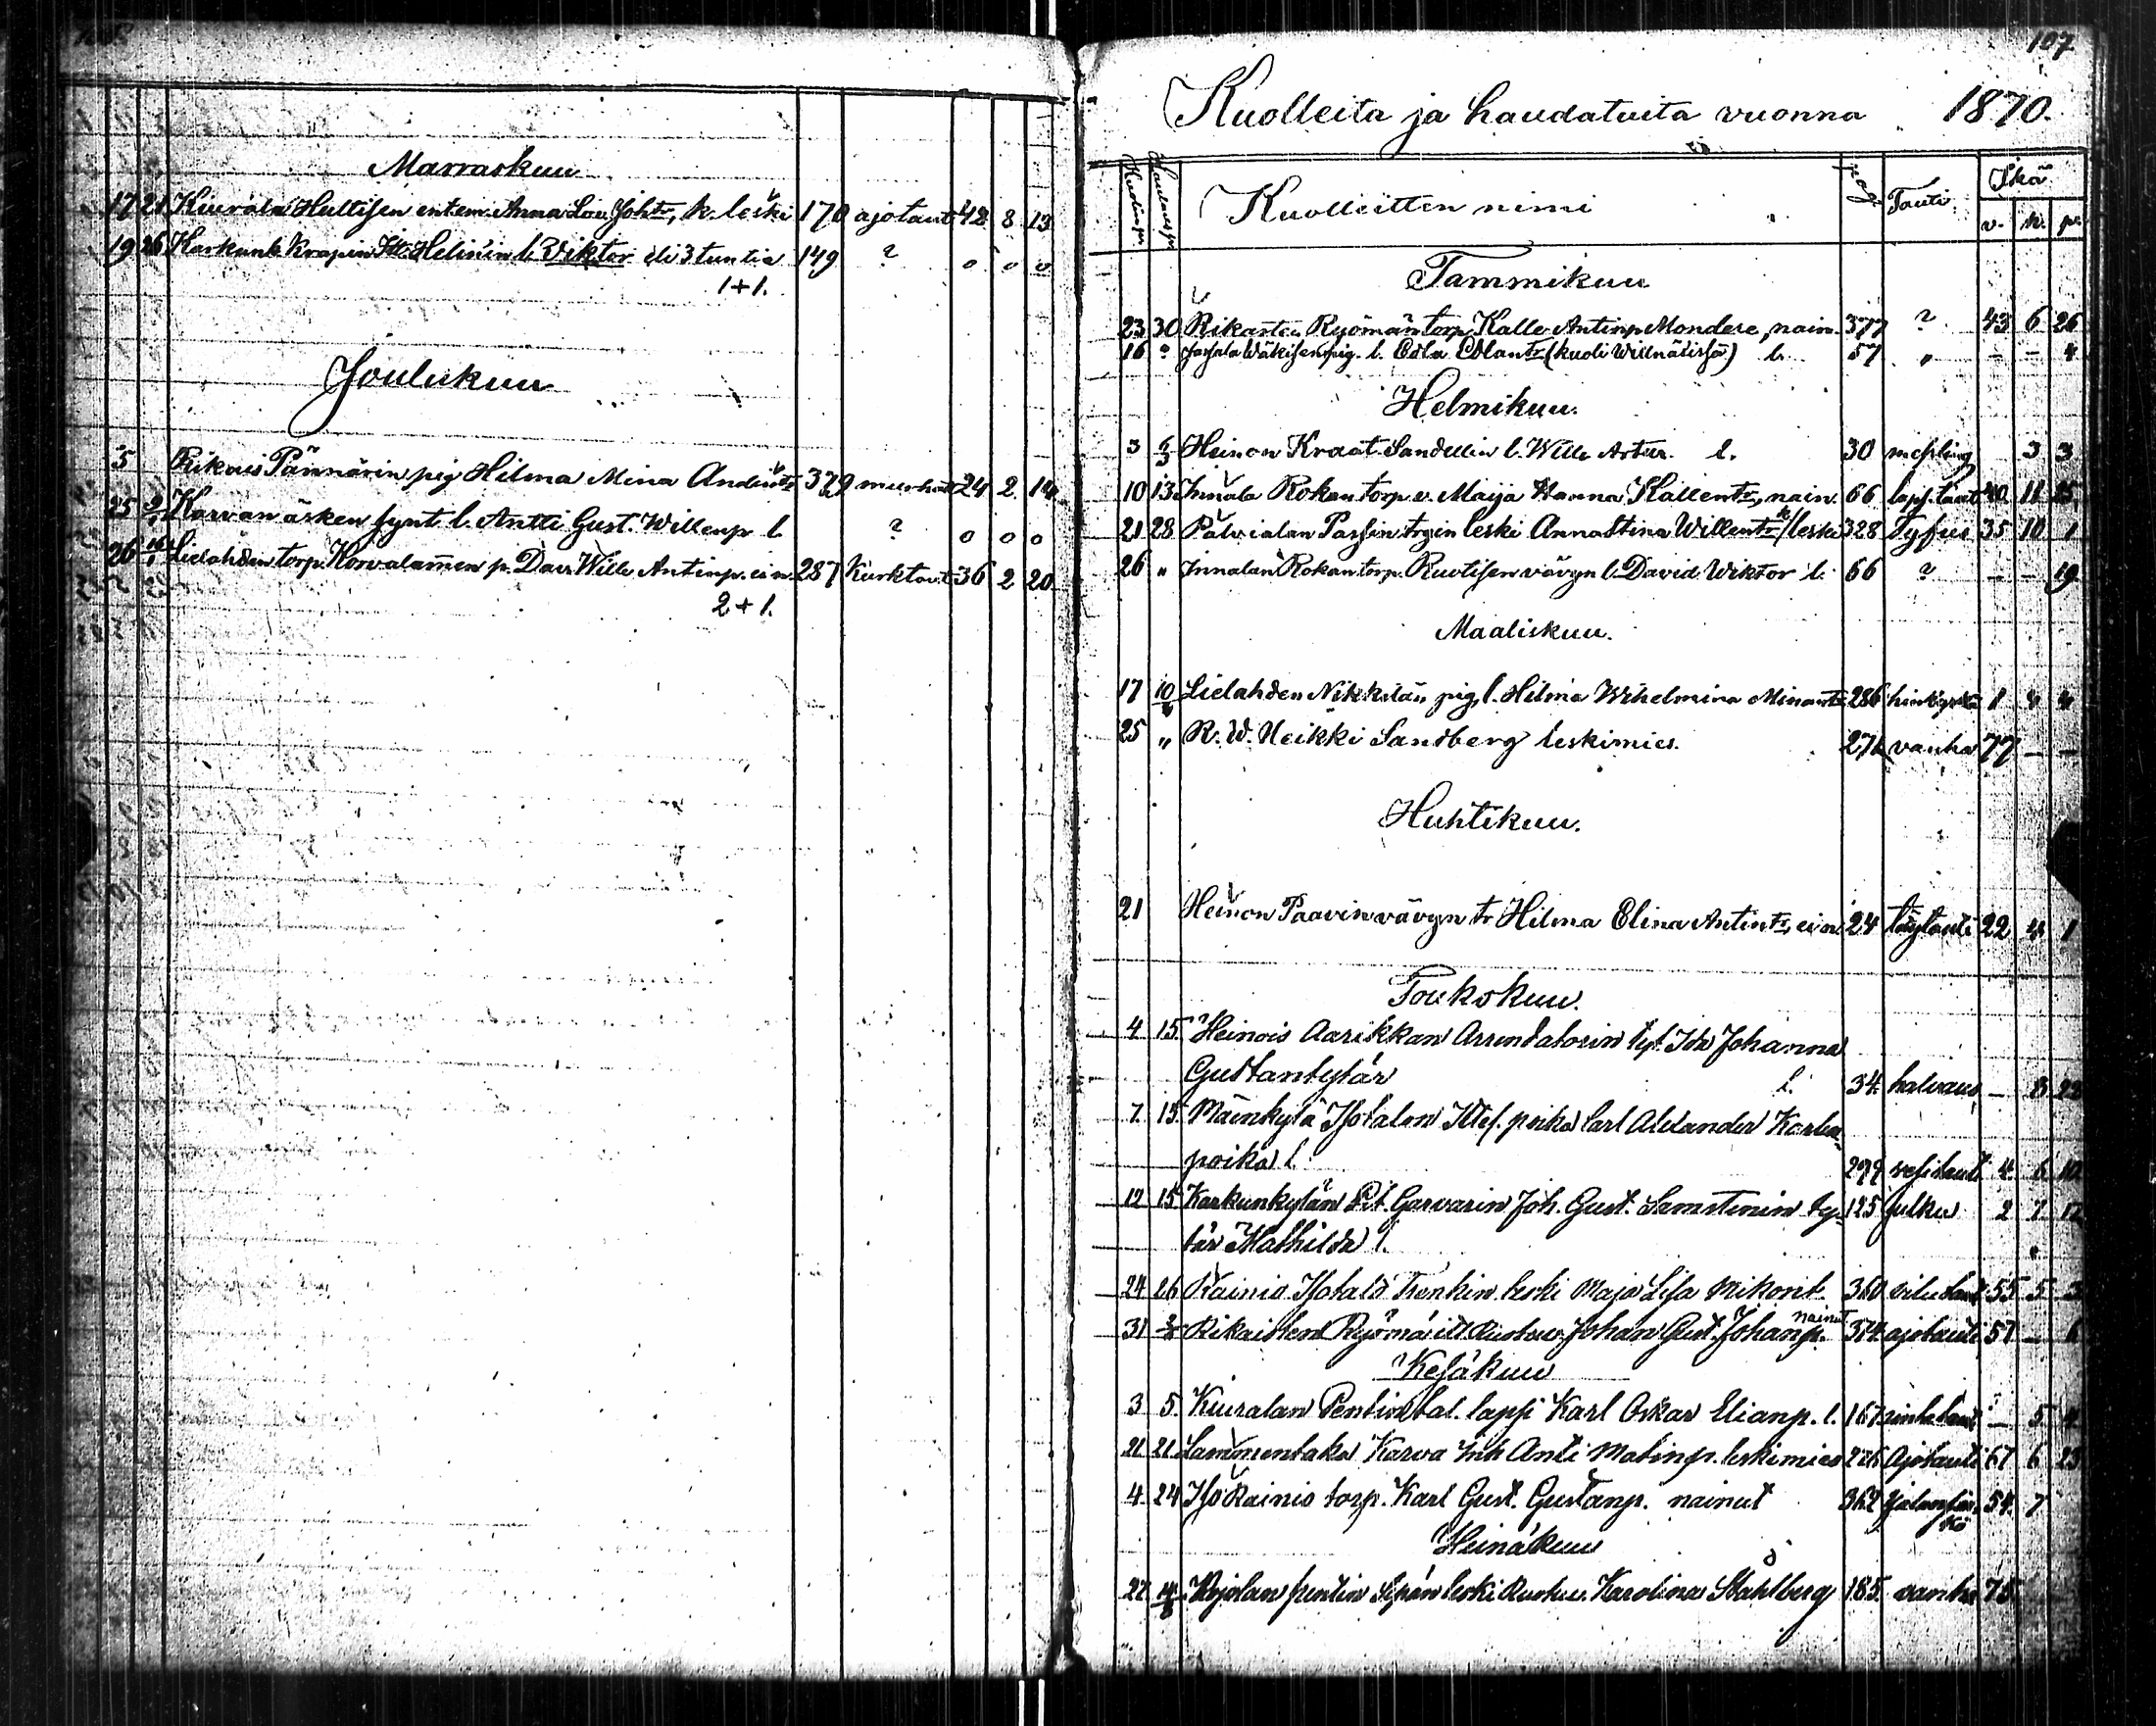 Marraskuu
17 21 Kiurala Hultisen ent.em. Anna Lov. Joh.tr, k. leski 170 ajotaut 42 8 13
19 26 Karkunk. Krapin Itt. Helinin l. Viktor eli 3 tuntia 149 ? 0 0 0
1+1.
Joulukuu
5 Rikais Pännärin pig Hilma Mina Andintr 379 24 2 14
25 Karvan äsken synt. l. Antti Gust. Willenp l ? 0 0 0
26 Lielahden torp. Korvalamen p. Dav. Wille Antinp. ei n. 287 Kurktaut 36 2 20
2+1.
107
Kuolleita ja haudatuita vuonna 1870.
Kuolleitten nimi pag Tauti Ikä
v. k. p.
Tammikuu
23 30 Rikasten Ryömän torp. Kalle Antinp Mondere, nain. 377 ? 43 6 26
16 " Wäkisen pig. l. Edla (kuoli Willnäsissä) l. 57 " - - 4
Helmikuu.
3 6/3 Heinon Kraat. Sandellin l. Wille Artur. l. 30 messling 3 3
10 13 Innala Rokan torp. v. Maija Hanna Kallentr, nain. 66 laps. taut 40 11 25
21 28 Palvialan Passin trpin leski Anna Stina Willentr leski 328 Tyfus 35 10 1
26 " Innalan Rokan torp. Ruotisen vävyn l. David Wiktor l. 66 ? - - 19
Maaliskuu.
17 10/4 Lielahden Nikkilän pig. l. Hilma Wilhelmina Minantr 286 1 4 4
25 " R. W. Heikki Sandberg leskimies. 276 vanha 77 - -
Huhtikuu.
21 Heinon Paavin vävyn tr Hilma Elina Antintr, ei n. 24 22 4 1
Toukokuu.
4 15. Heinois Aarikkan Arrendatorin tyt. Ida Johanna
Gustantytär l. 34. halvaus - 8 22
7. 15. Mäenkylä Isotalon Itles. poika Carl Alexander Karlen
poika l. 299 vesitaut 4 6 10
12 15 Karkunkylän Pit. Garvarin Joh. Gust. Samstenin ty- 125 julku 2 7 12
tär Mathilda l.
24 26 Rainio Isotalo Trenkin leski Maja Lisa Mikont. 360 vilutaut 55 5 3
31 Rikaisten Ryömä itl. Rustuv. Johan Gust. Johanp. nainut 374 ajotauti 57 - 6
Kesäkuu
3 5. Kiuralan Pentin tal. lapsi Karl Oskar Elianp. l. 167 rintataut - 5 4
21 21 Lammentaka Karva Inh Anti Matinp. leskimies 226 Ajotauti 67 6 23
4. 24 Iso Rainio torp. Karl Gust. Gustanp. nainut 362 54. 7
Heinäkuu
27. 4/8 Kojolan pentin Sepän leski Ruotu. Karolina Stahlberg 185. vanha 75